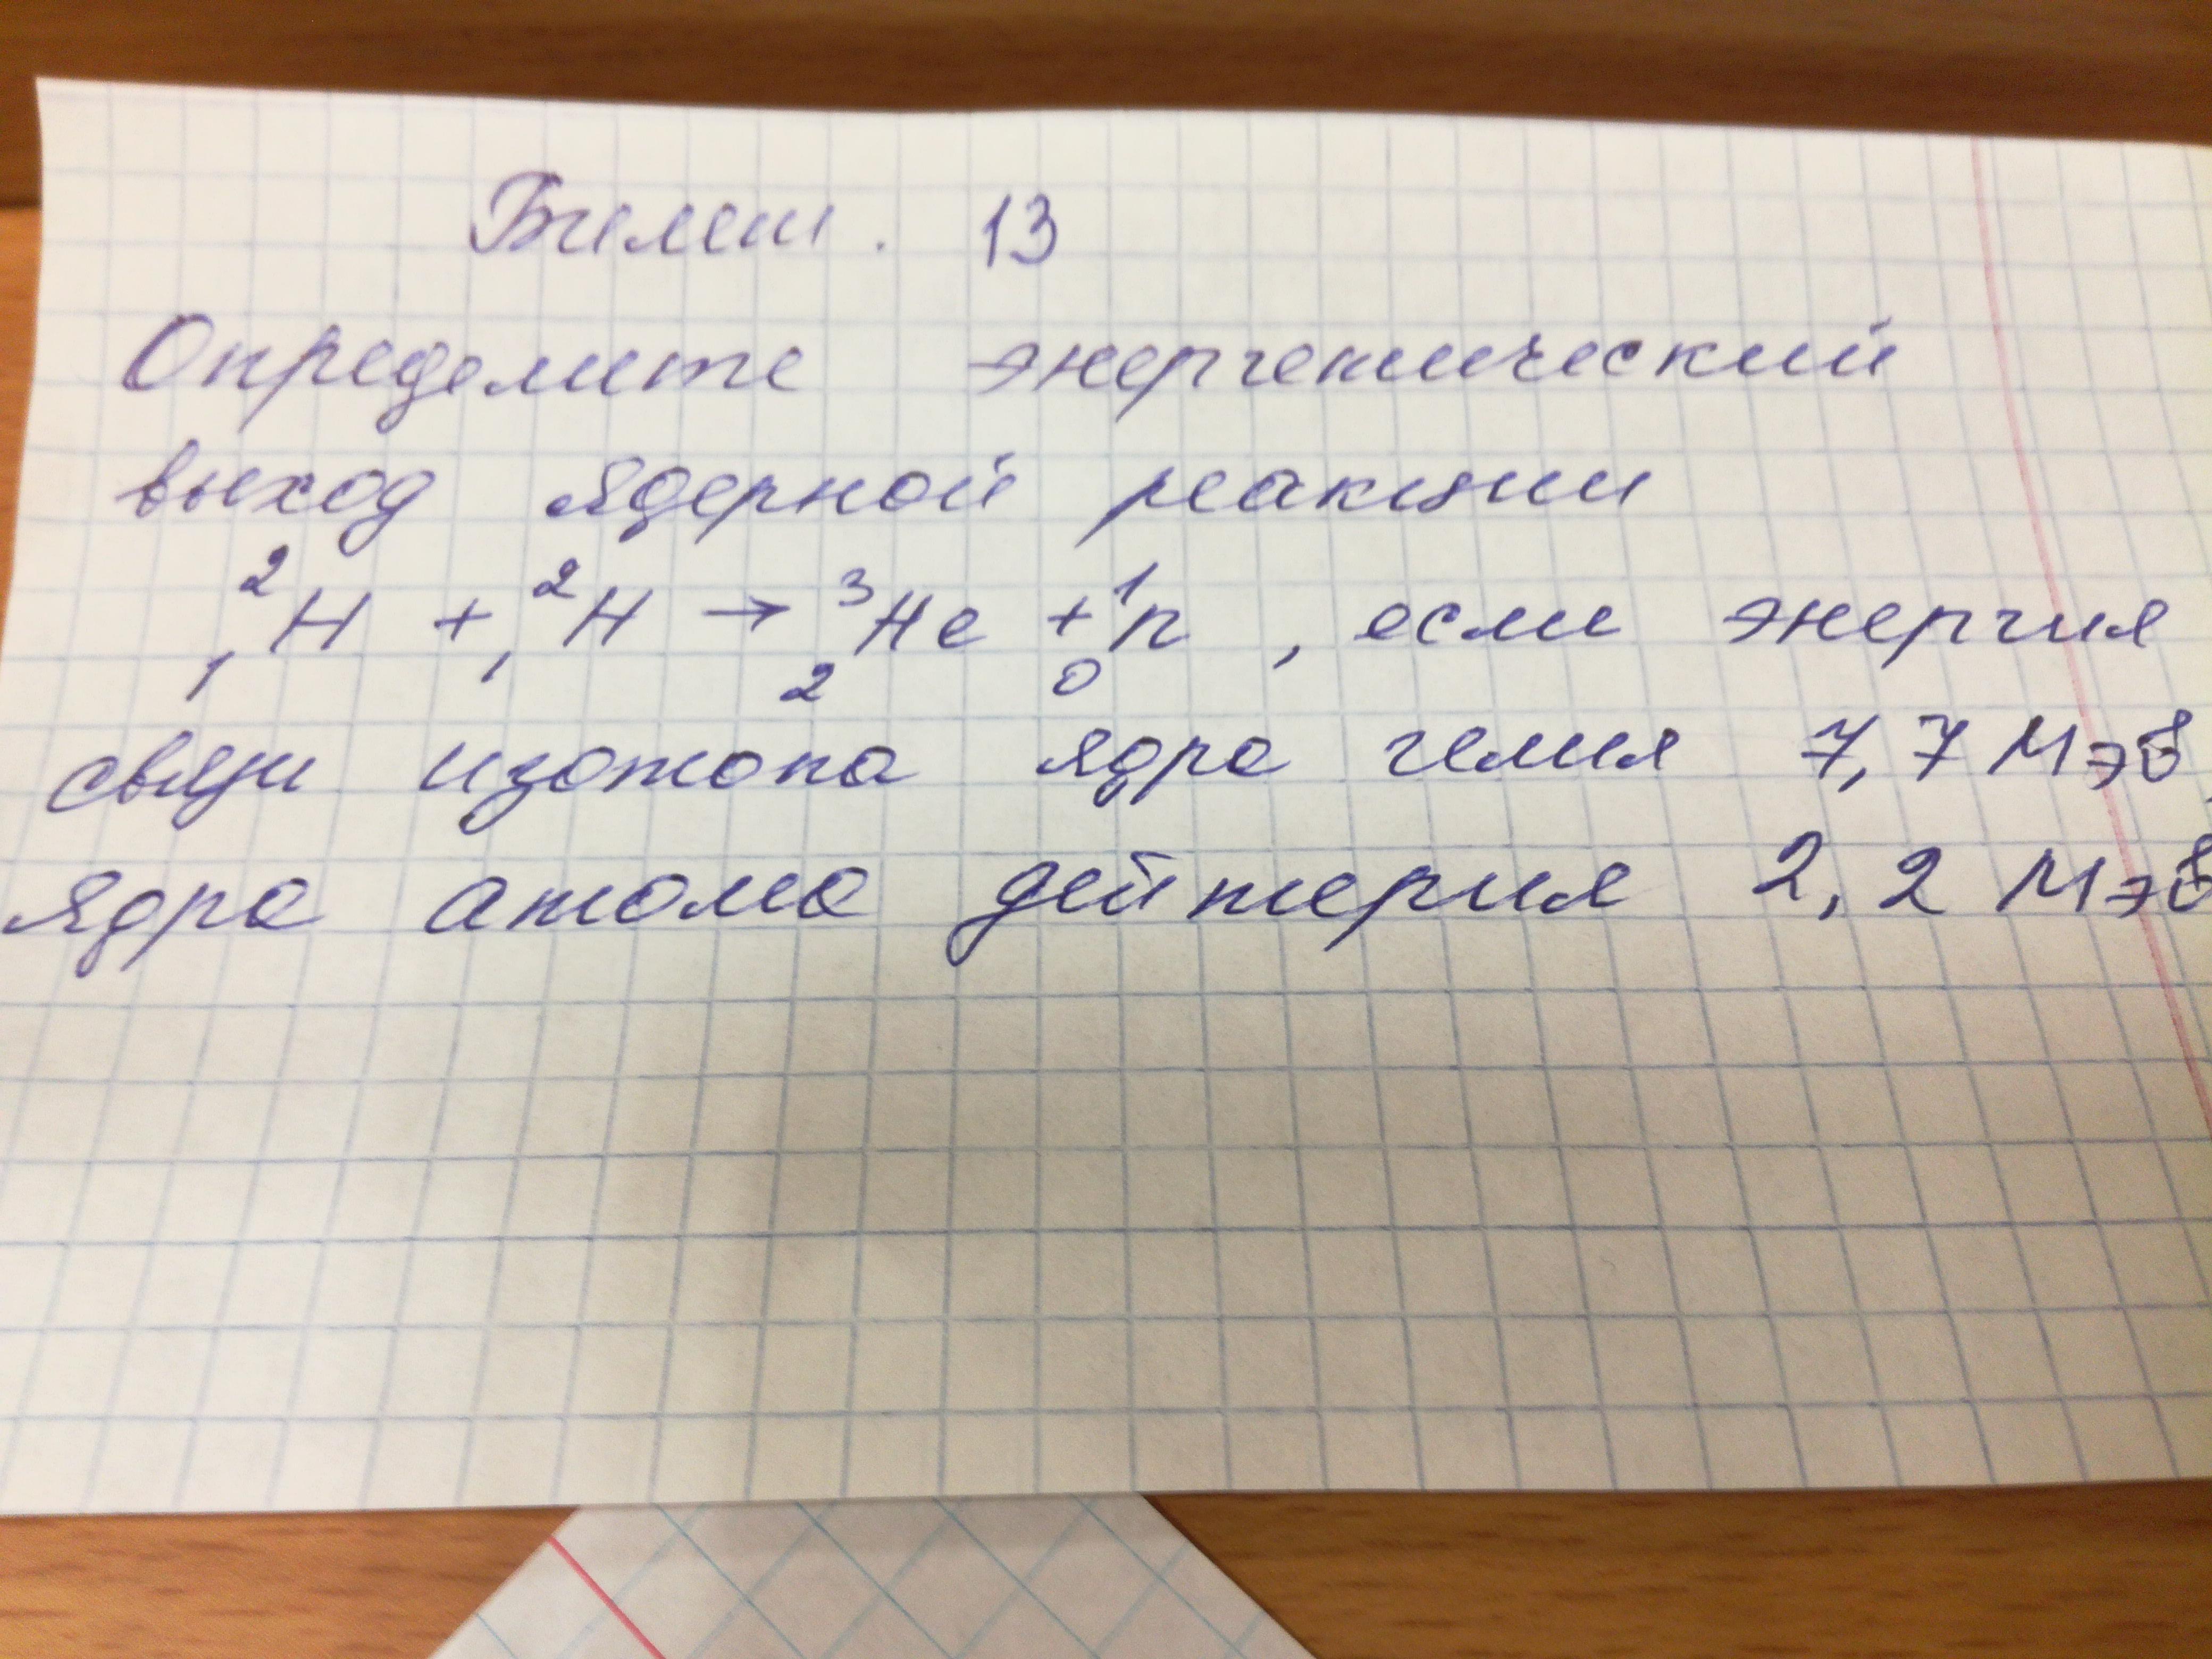 Билет. 13
Определите энергетический
выход ядерной реакции
²₁H + ²₁H → ³₂He + ¹₀n , если энергия
связи изотопа ядра гелия 7,7 МэВ,
ядра атома дейтерия 2,2 МэВ